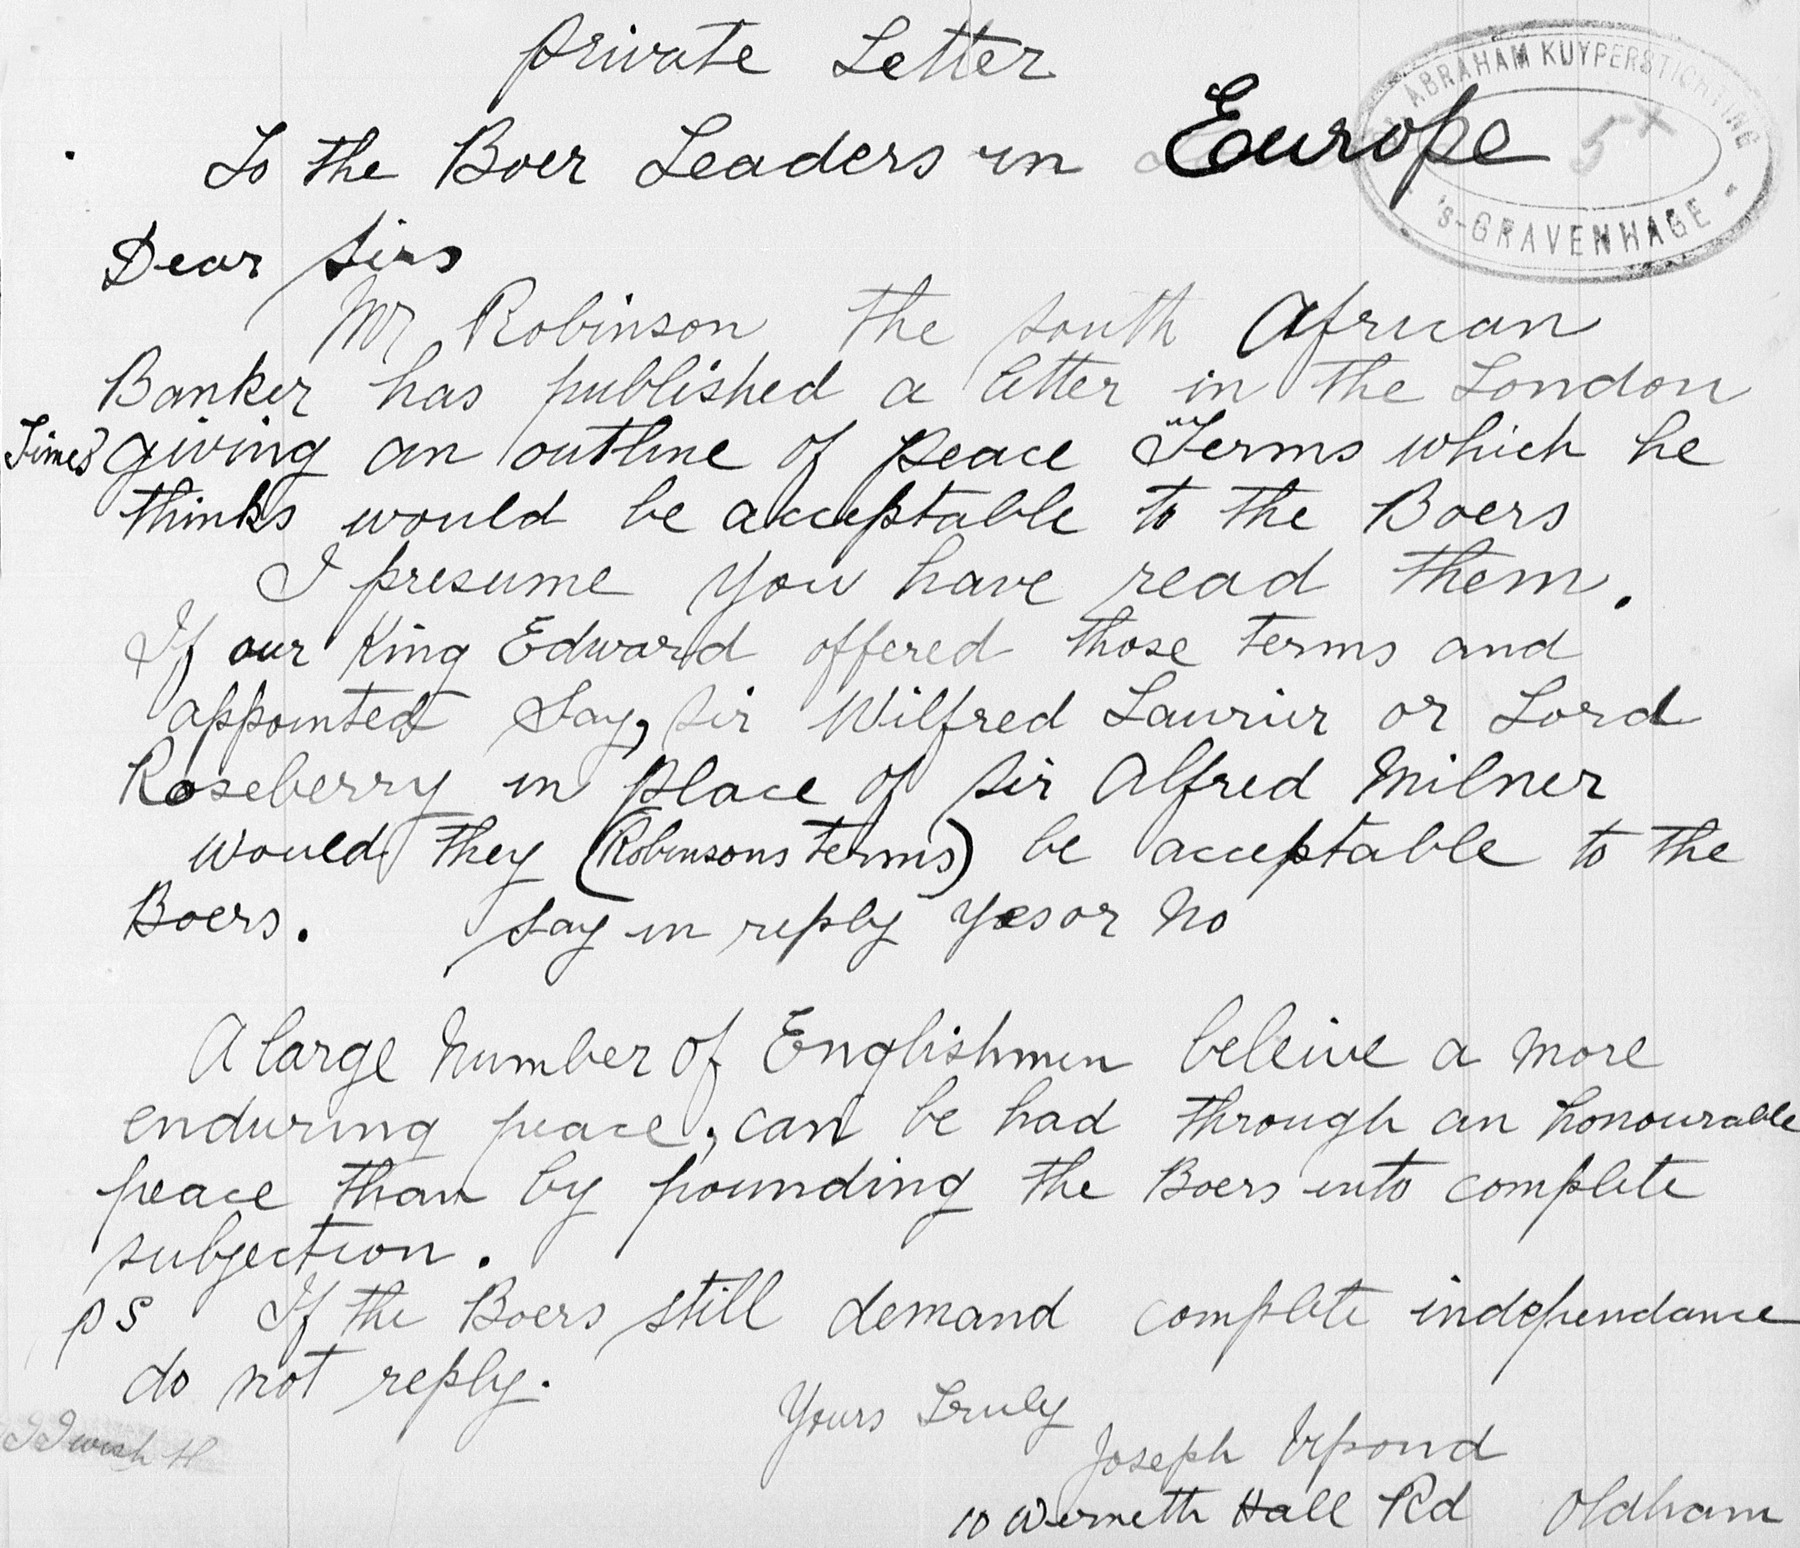 private Letter
To the Boer Leaders in Europe
ABRAHAM KUYPERSTICHTING
5x
's-GRAVENHAGE
Dear Sirs
Mr Robinson the south African
Banker has published a letter in the London
Times giving an outline of peace Terms which he
thinks would be acceptable to the Boers
I presume you have read them.
If our King Edward offered those terms and
appointed Say, Sir Wilfred Laurier or Lord
Roseberry in place of Sir Alfred Milner
would they (Robinsons terms) be acceptable to the
Boers. Say in reply Yes or No
A large Number of Englishmen beleive a more
enduring peace, can be had through an honourable
peace than by pounding the Boers into complete
subjection.
PS If the Boers still demand complete independance
do not reply.
Yours Truly
Joseph
10 Werneth Hall Rd Oldham